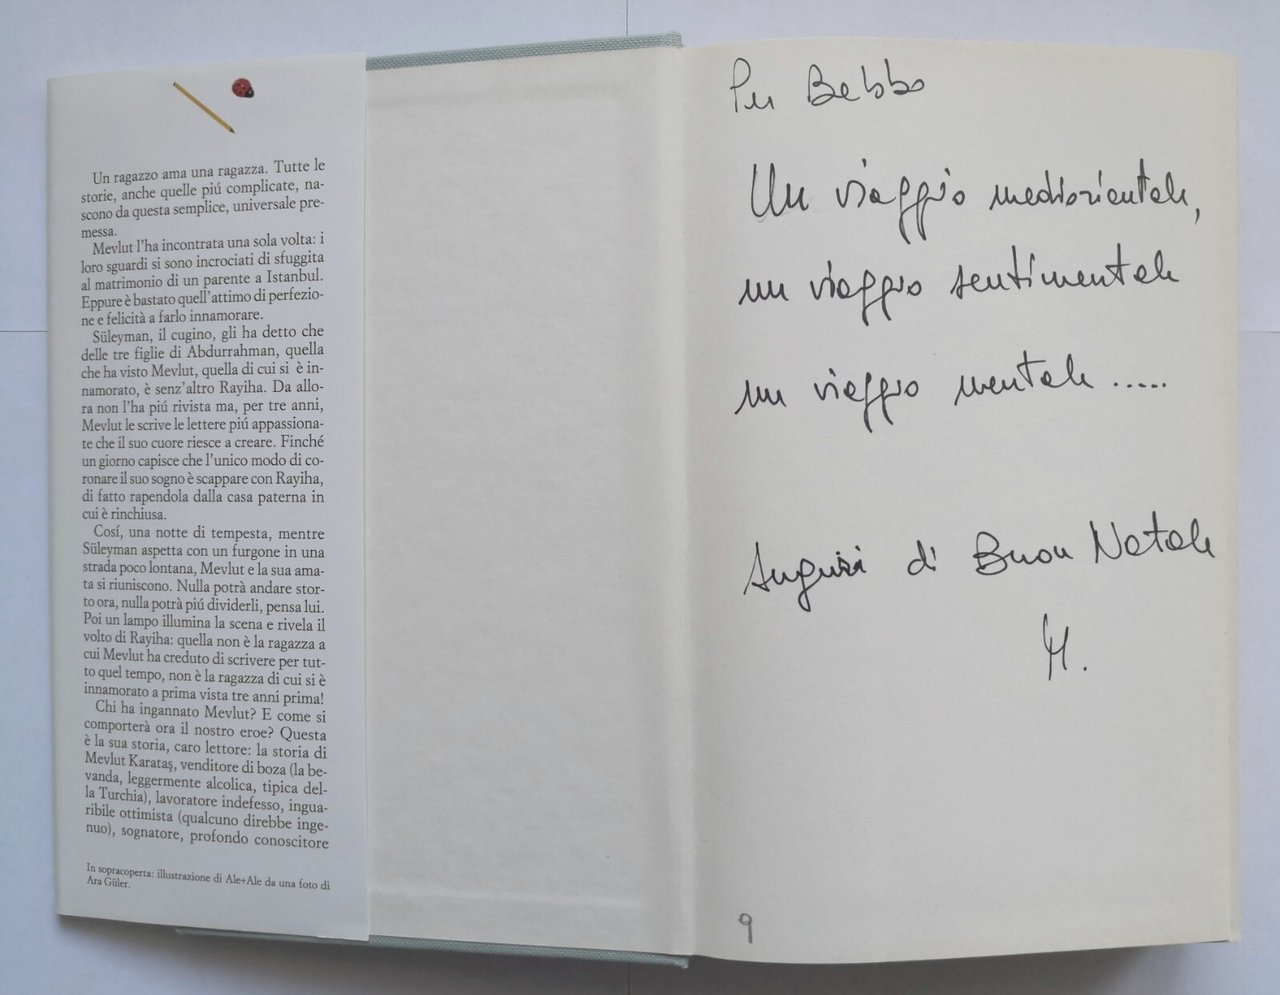 Un ragazzo ama una ragazza. Tutte le
storie, anche quelle piú complicate, na-
scono da questa semplice, universale pre-
messa.
Mevlut l'ha incontrata una sola volta: i
loro sguardi si sono incrociati di sfuggita
al matrimonio di un parente a Istanbul.
Eppure è bastato quell'attimo di perfezio-
ne e felicità a farlo innamorare.
Süleyman, il cugino, gli ha detto che
delle tre figlie di Abdurrahman, quella
che ha visto Mevlut, quella di cui si è in-
namorato, è senz'altro Rayiha. Da allo-
ra non l'ha piú rivista ma, per tre anni,
Mevlut le scrive le lettere piú appassiona-
te che il suo cuore riesce a creare. Finché
un giorno capisce che l'unico modo di co-
ronare il suo sogno è scappare con Rayiha,
di fatto rapendola dalla casa paterna in
cui è rinchiusa.
Cosí, una notte di tempesta, mentre
Süleyman aspetta con un furgone in una
strada poco lontana, Mevlut e la sua ama-
ta si riuniscono. Nulla potrà andare stor-
to ora, nulla potrà piú dividerli, pensa lui.
Poi un lampo illumina la scena e rivela il
volto di Rayiha: quella non è la ragazza a
cui Mevlut ha creduto di scrivere per tut-
to quel tempo, non è la ragazza di cui si è
innamorato a prima vista tre anni prima!
Chi ha ingannato Mevlut? E come si
comporterà ora il nostro eroe? Questa
è la sua storia, caro lettore: la storia di
Mevlut Karataş, venditore di boza (la be-
vanda, leggermente alcolica, tipica del-
la Turchia), lavoratore indefesso, ingua-
ribile ottimista (qualcuno direbbe inge-
nuo), sognatore, profondo conoscitore
In sopracoperta: illustrazione di Ale+Ale da una foto di
Ara Güler.
Per Babbo
Un viaggio mediorientale,
un viaggio sentimentale
un viaggio mentale .....
Auguri di Buon Natale
M.
9